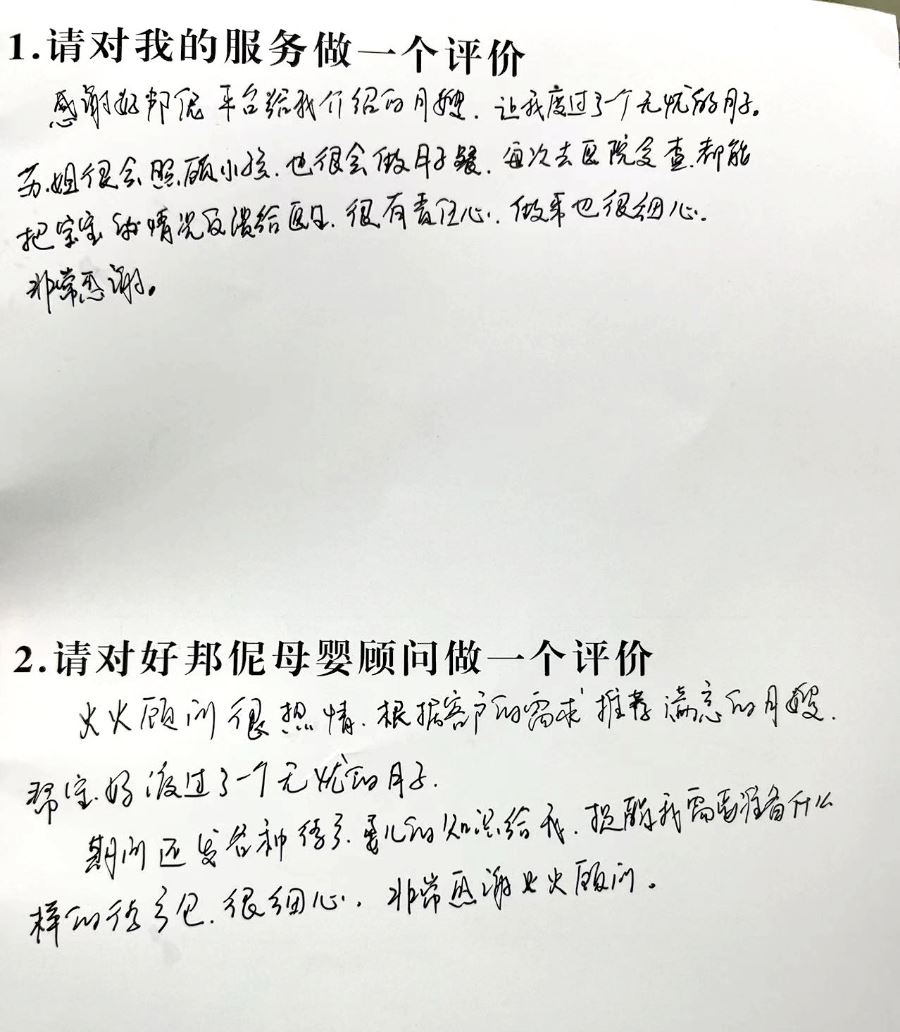 1.请对我的服务做一个评价
感谢好邦伲平台给我介绍的月嫂,让我度过了一个无忧的月子。
苏姐很会照顾小孩,也很会做月子餐,每次去医院复查,都能
把宝宝的情况反馈给医生,很有责任心,做事也很细心.
非常感谢。
2.请对好邦伲母婴顾问做一个评价
火火顾问很热情,根据客户的需求推荐满意的月嫂.
帮宝妈渡过了一个无忧的月子.
期间还发各种待产、育儿的知识给我,提醒我需要准备什么
样的待产包,很细心,非常感谢火火顾问。